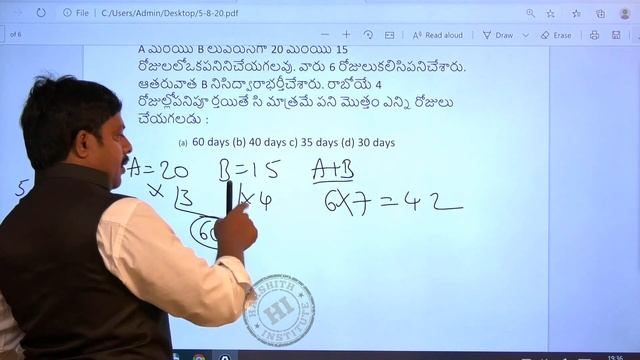 File | C:/Users/Admin/Desktop/5-8-20.pdf
of 6
Read aloud Draw Highlight Erase
A మరియు B లు వరుసగా 20 మరియు 15
రోజులలో ఒక పనిని చేయగలవు. వారు 6 రోజులు కలిసి పని చేశారు.
ఆ తరువాత B ని సి ద్వారా భర్తీ చేశారు. రాబోయే 4
రోజుల్లో పని పూర్తయితే సి మాత్రమే పని మొత్తం ఎన్ని రోజులు
చేయగలడు :
(a) 60 days (b) 40 days c) 35 days (d) 30 days
A=20 B=15 A+B
× 3 × 4 6×7=42
60
HARSHITH INSTITUTE
HI
19:36